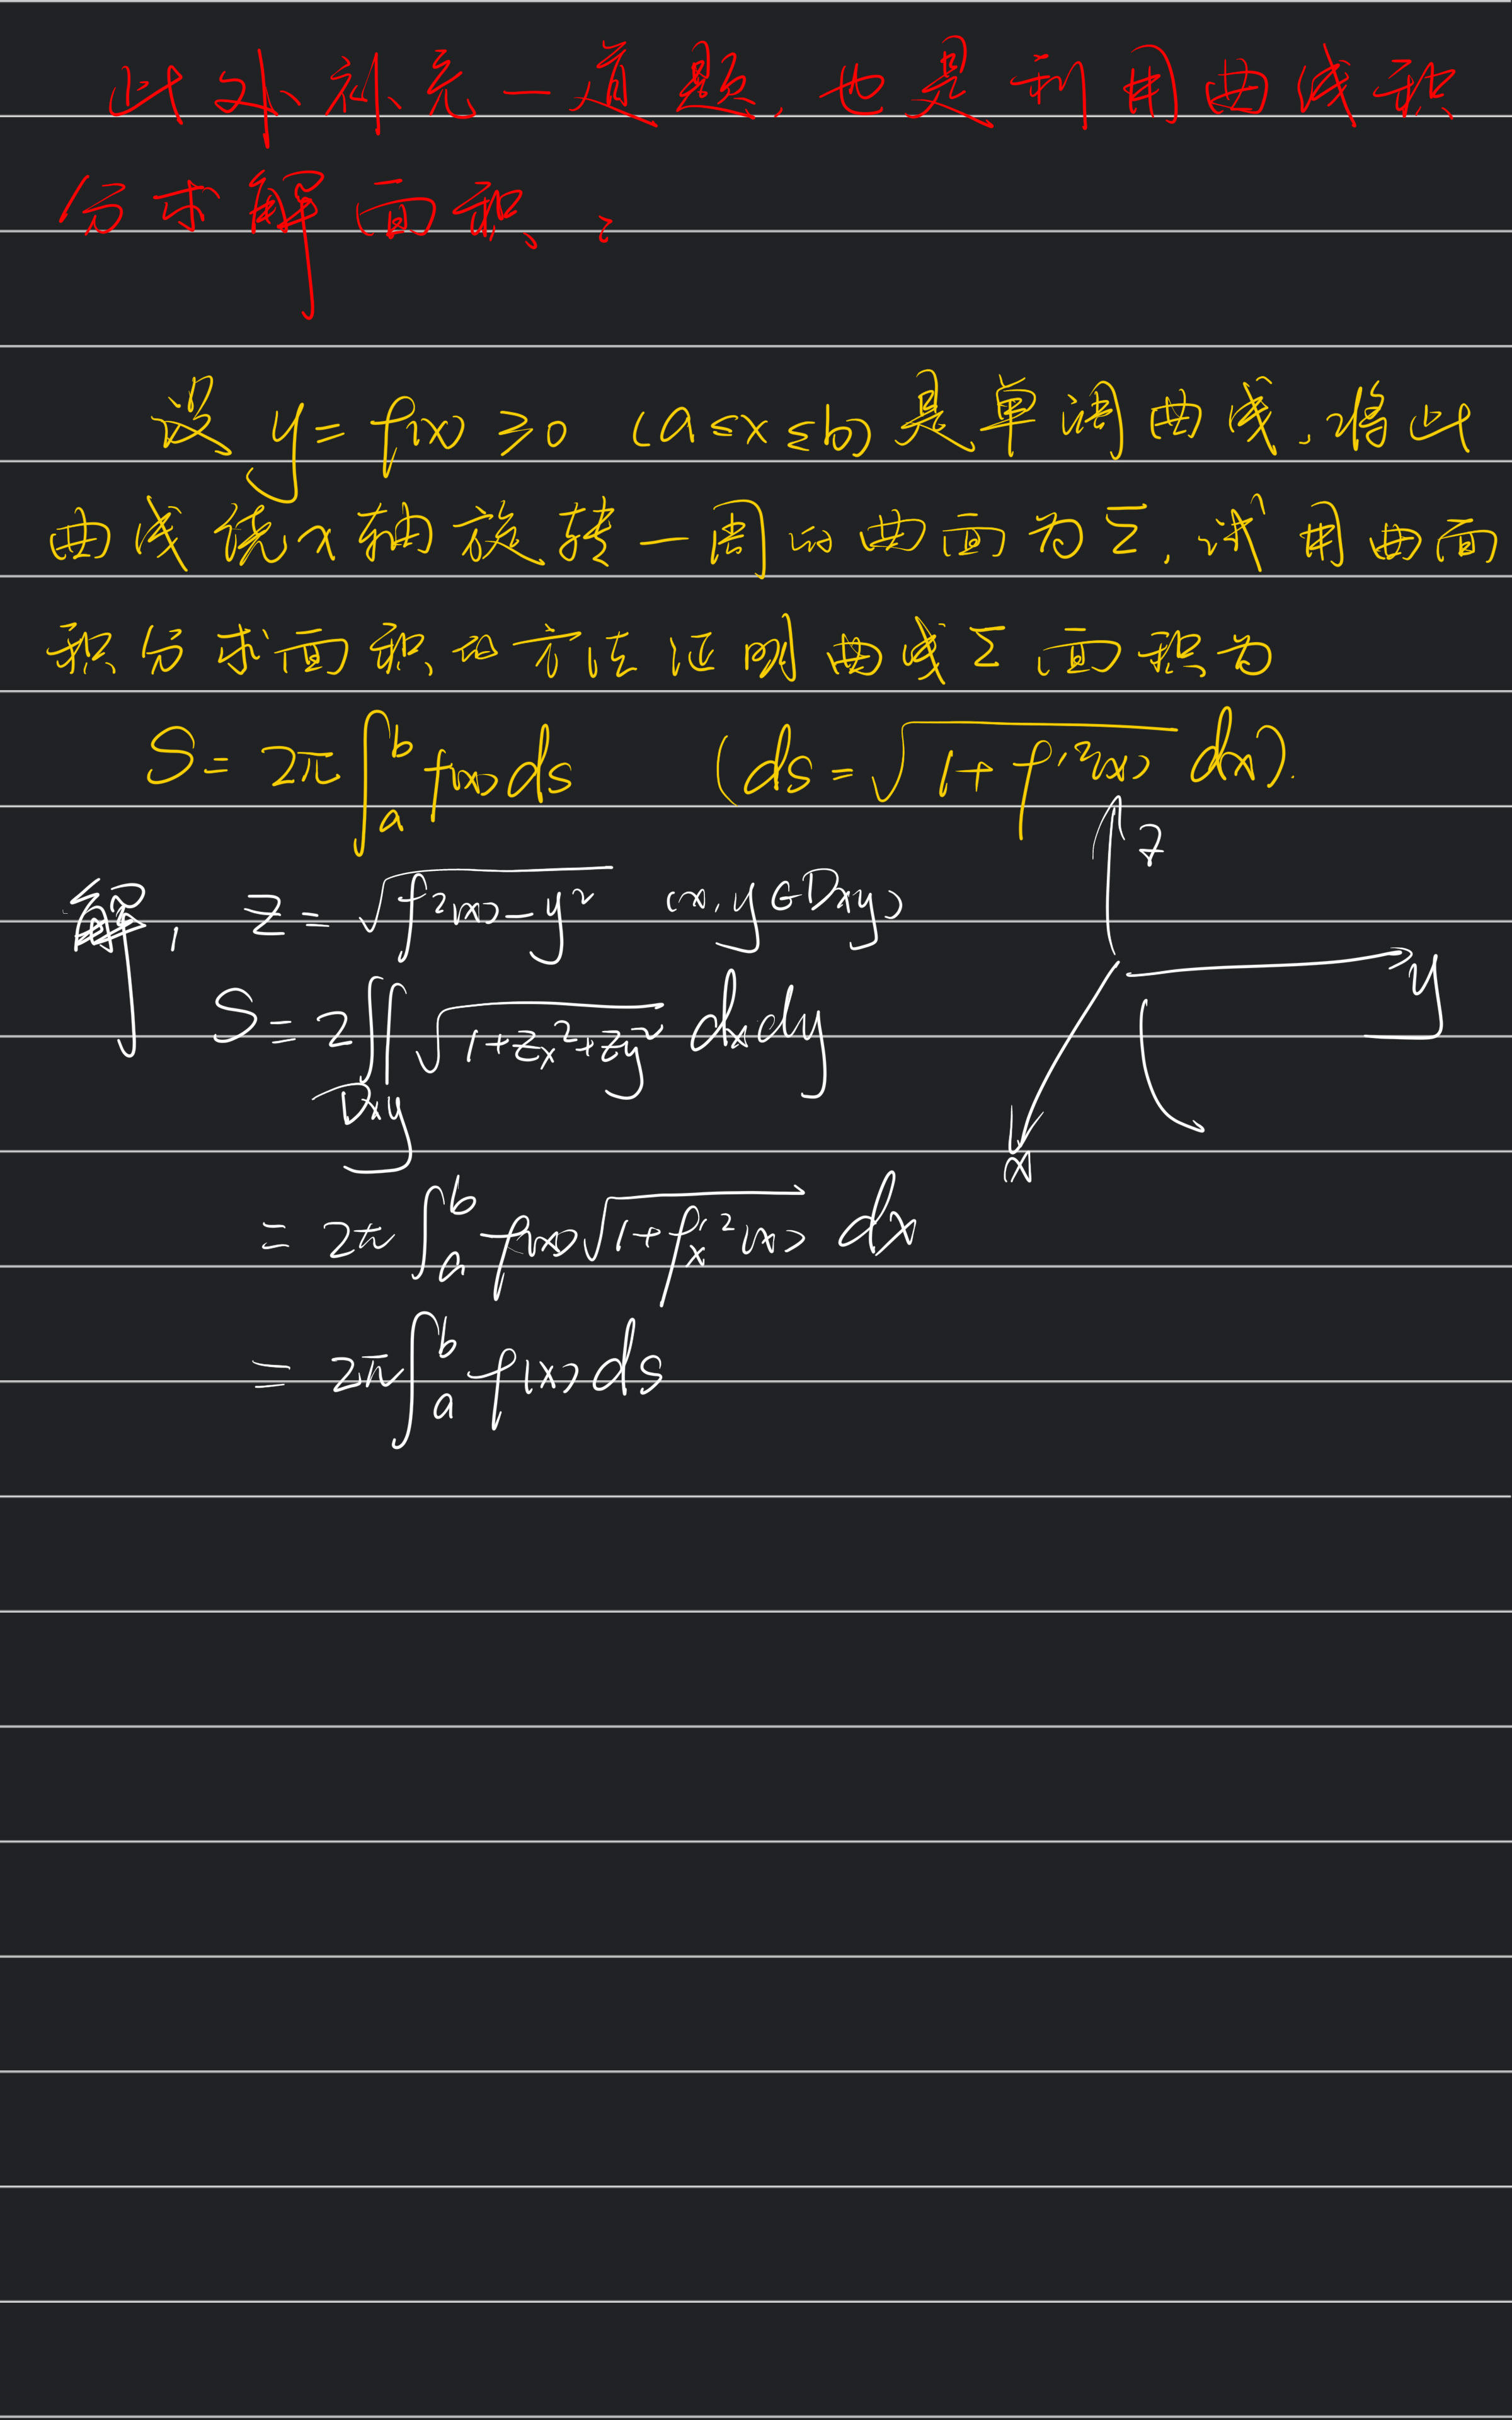 此外补充一道题,也是利用曲线积
分求解面积。
设 y = f(x) ≥ 0 (a ≤ x ≤ b) 是单调曲线,将此
曲线绕x轴旋转一周的曲面为Σ,试用曲面
积分求面积的方法证明曲线Σ面积为
S = 2π∫_a^b f(x) ds (ds = √(1 + f'²(x)) dx).
z
解, z = √(f²(x) - y²) (x, y ∈ Dxy)
y
S = 2∬_{Dxy} √(1 + z_x² + z_y²) dxdy
x
= 2π∫_a^b f(x)√(1 + f'_x²(x)) dx
= 2π∫_a^b f(x) ds